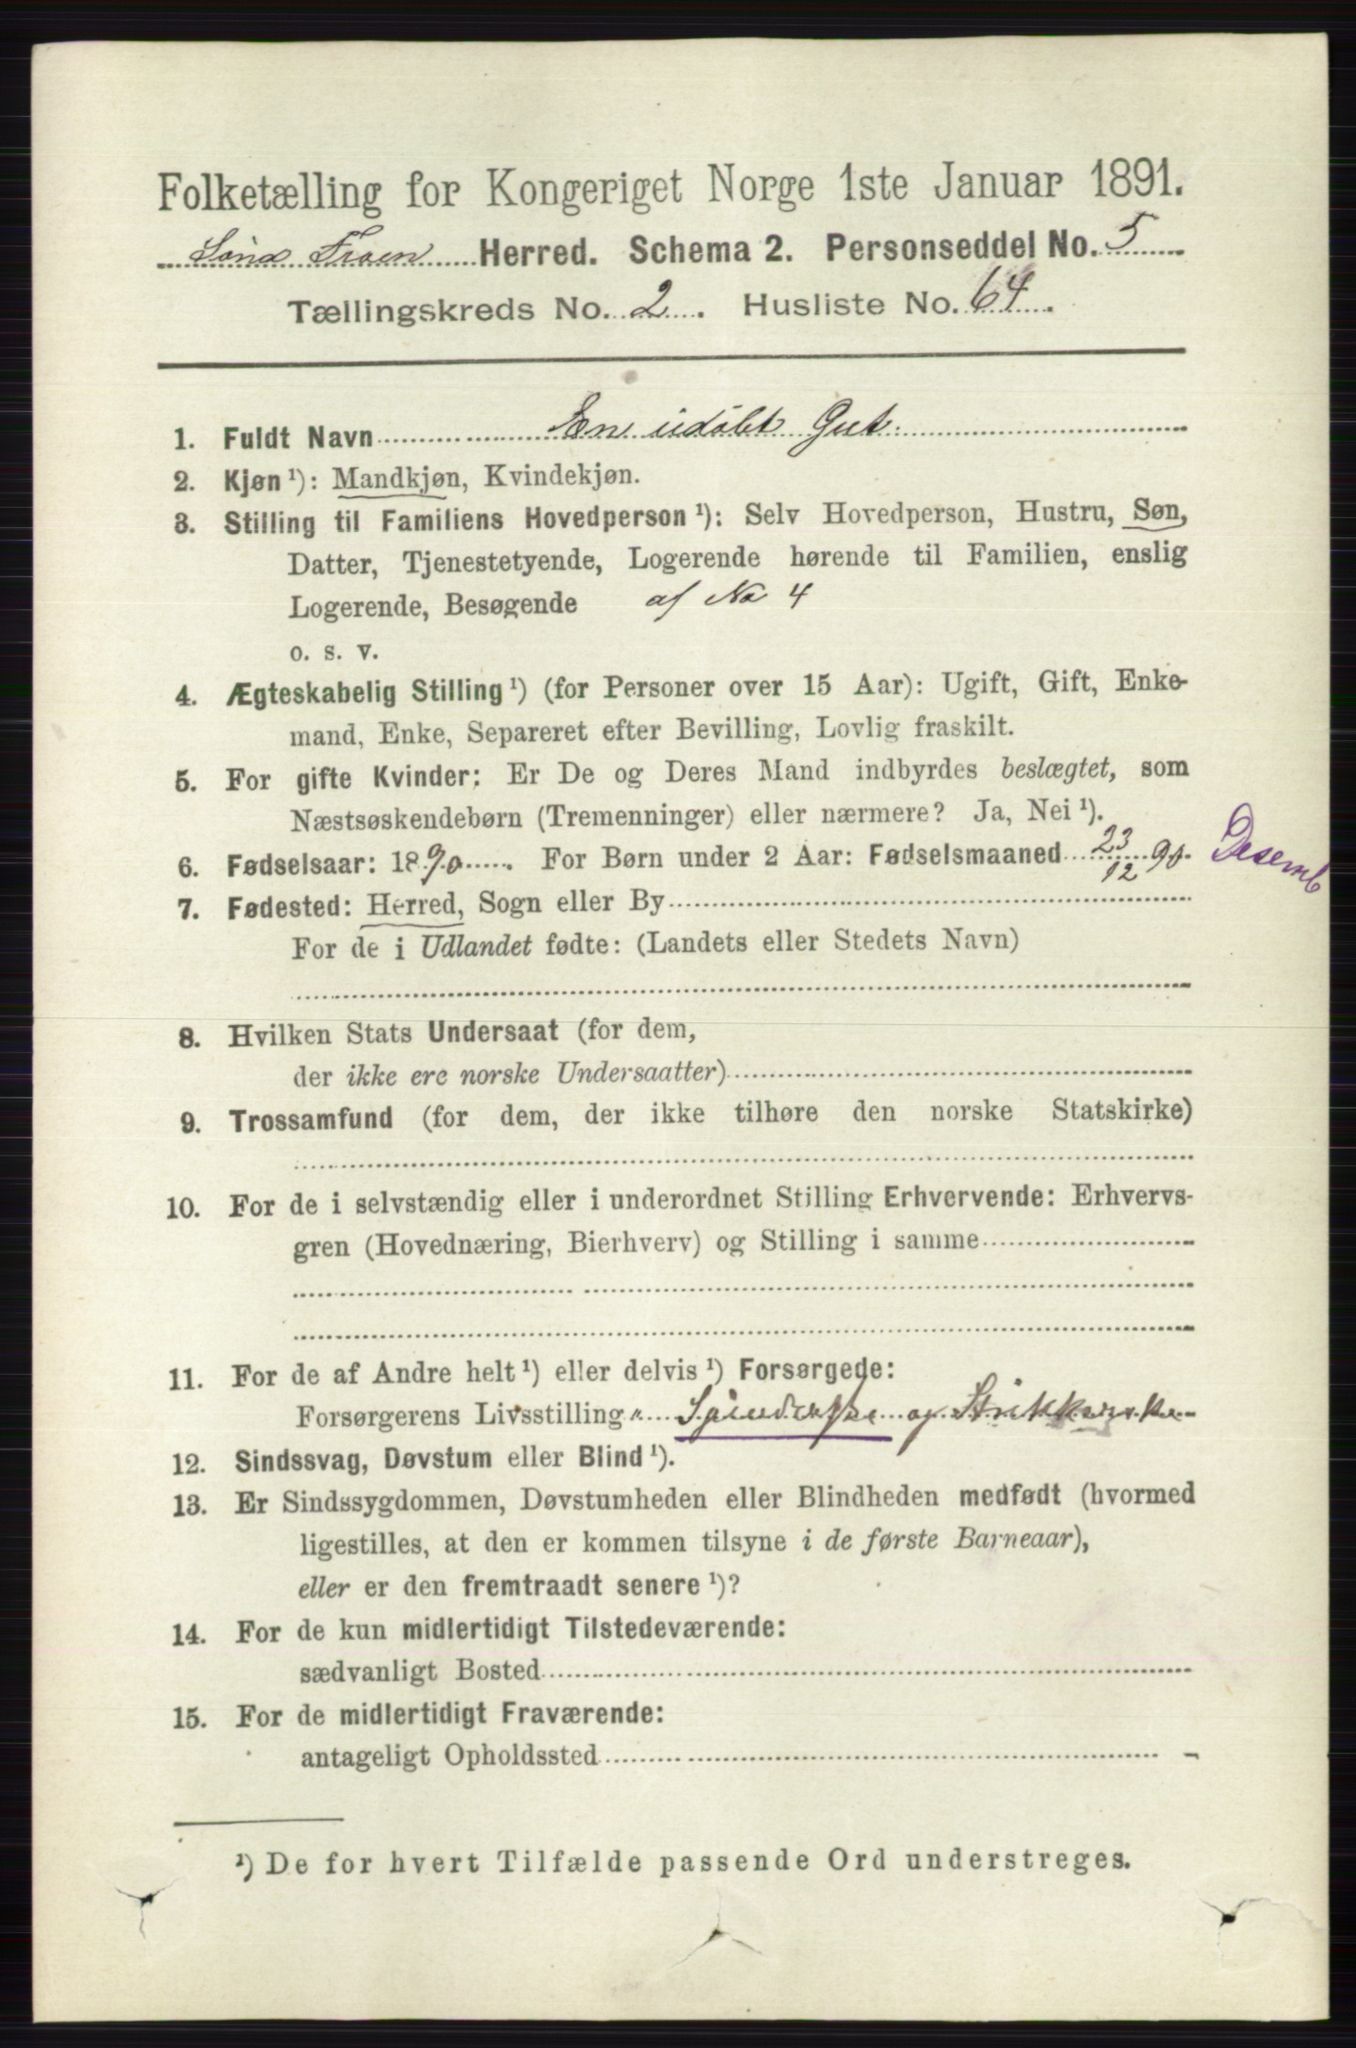 Folketælling for Kongeriget Norge 1ste Januar 1891.
Søndre Froen Herred. Schema 2. Personseddel No. 5
Tællingskreds No. 2. Husliste No. 64.
1. Fuldt Navn En udøbt Gut.
2. Kjøn ¹): Mandkjøn, Kvindekjøn.
3. Stilling til Familiens Hovedperson ¹): Selv Hovedperson, Hustru, Søn,
Datter, Tjenestetyende, Logerende hørende til Familien, enslig
Logerende, Besøgende af No 4
o. s. v.
4. Ægteskabelig Stilling ¹) (for Personer over 15 Aar): Ugift, Gift, Enke-
mand, Enke, Separeret efter Bevilling, Lovlig fraskilt.
5. For gifte Kvinder: Er De og Deres Mand indbyrdes beslægtet, som
Næstsøskendebørn (Tremenninger) eller nærmere? Ja, Nei ¹).
6. Fødselsaar: 1890. For Børn under 2 Aar: Fødselsmaaned 23/12 90. Desemb
7. Fødested: Herred, Sogn eller By
For de i Udlandet fødte: (Landets eller Stedets Navn)
8. Hvilken Stats Undersaat (for dem,
der ikke ere norske Undersaatter)
9. Trossamfund (for dem, der ikke tilhøre den norske Statskirke)
10. For de i selvstændig eller i underordnet Stilling Erhvervende: Erhvervs-
gren (Hovednæring, Bierhverv) og Stilling i samme
11. For de af Andre helt ¹) eller delvis ¹) Forsørgede:
Forsørgerens Livsstilling og
12. Sindssvag, Døvstum eller Blind ¹).
13. Er Sindssygdommen, Døvstumheden eller Blindheden medfødt (hvormed
ligestilles, at den er kommen tilsyne i de første Barneaar),
eller er den fremtraadt senere ¹)?
14. For de kun midlertidigt Tilstedeværende:
sædvanligt Bosted
15. For de midlertidigt Fraværende:
antageligt Opholdssted
¹) De for hvert Tilfælde passende Ord understreges.